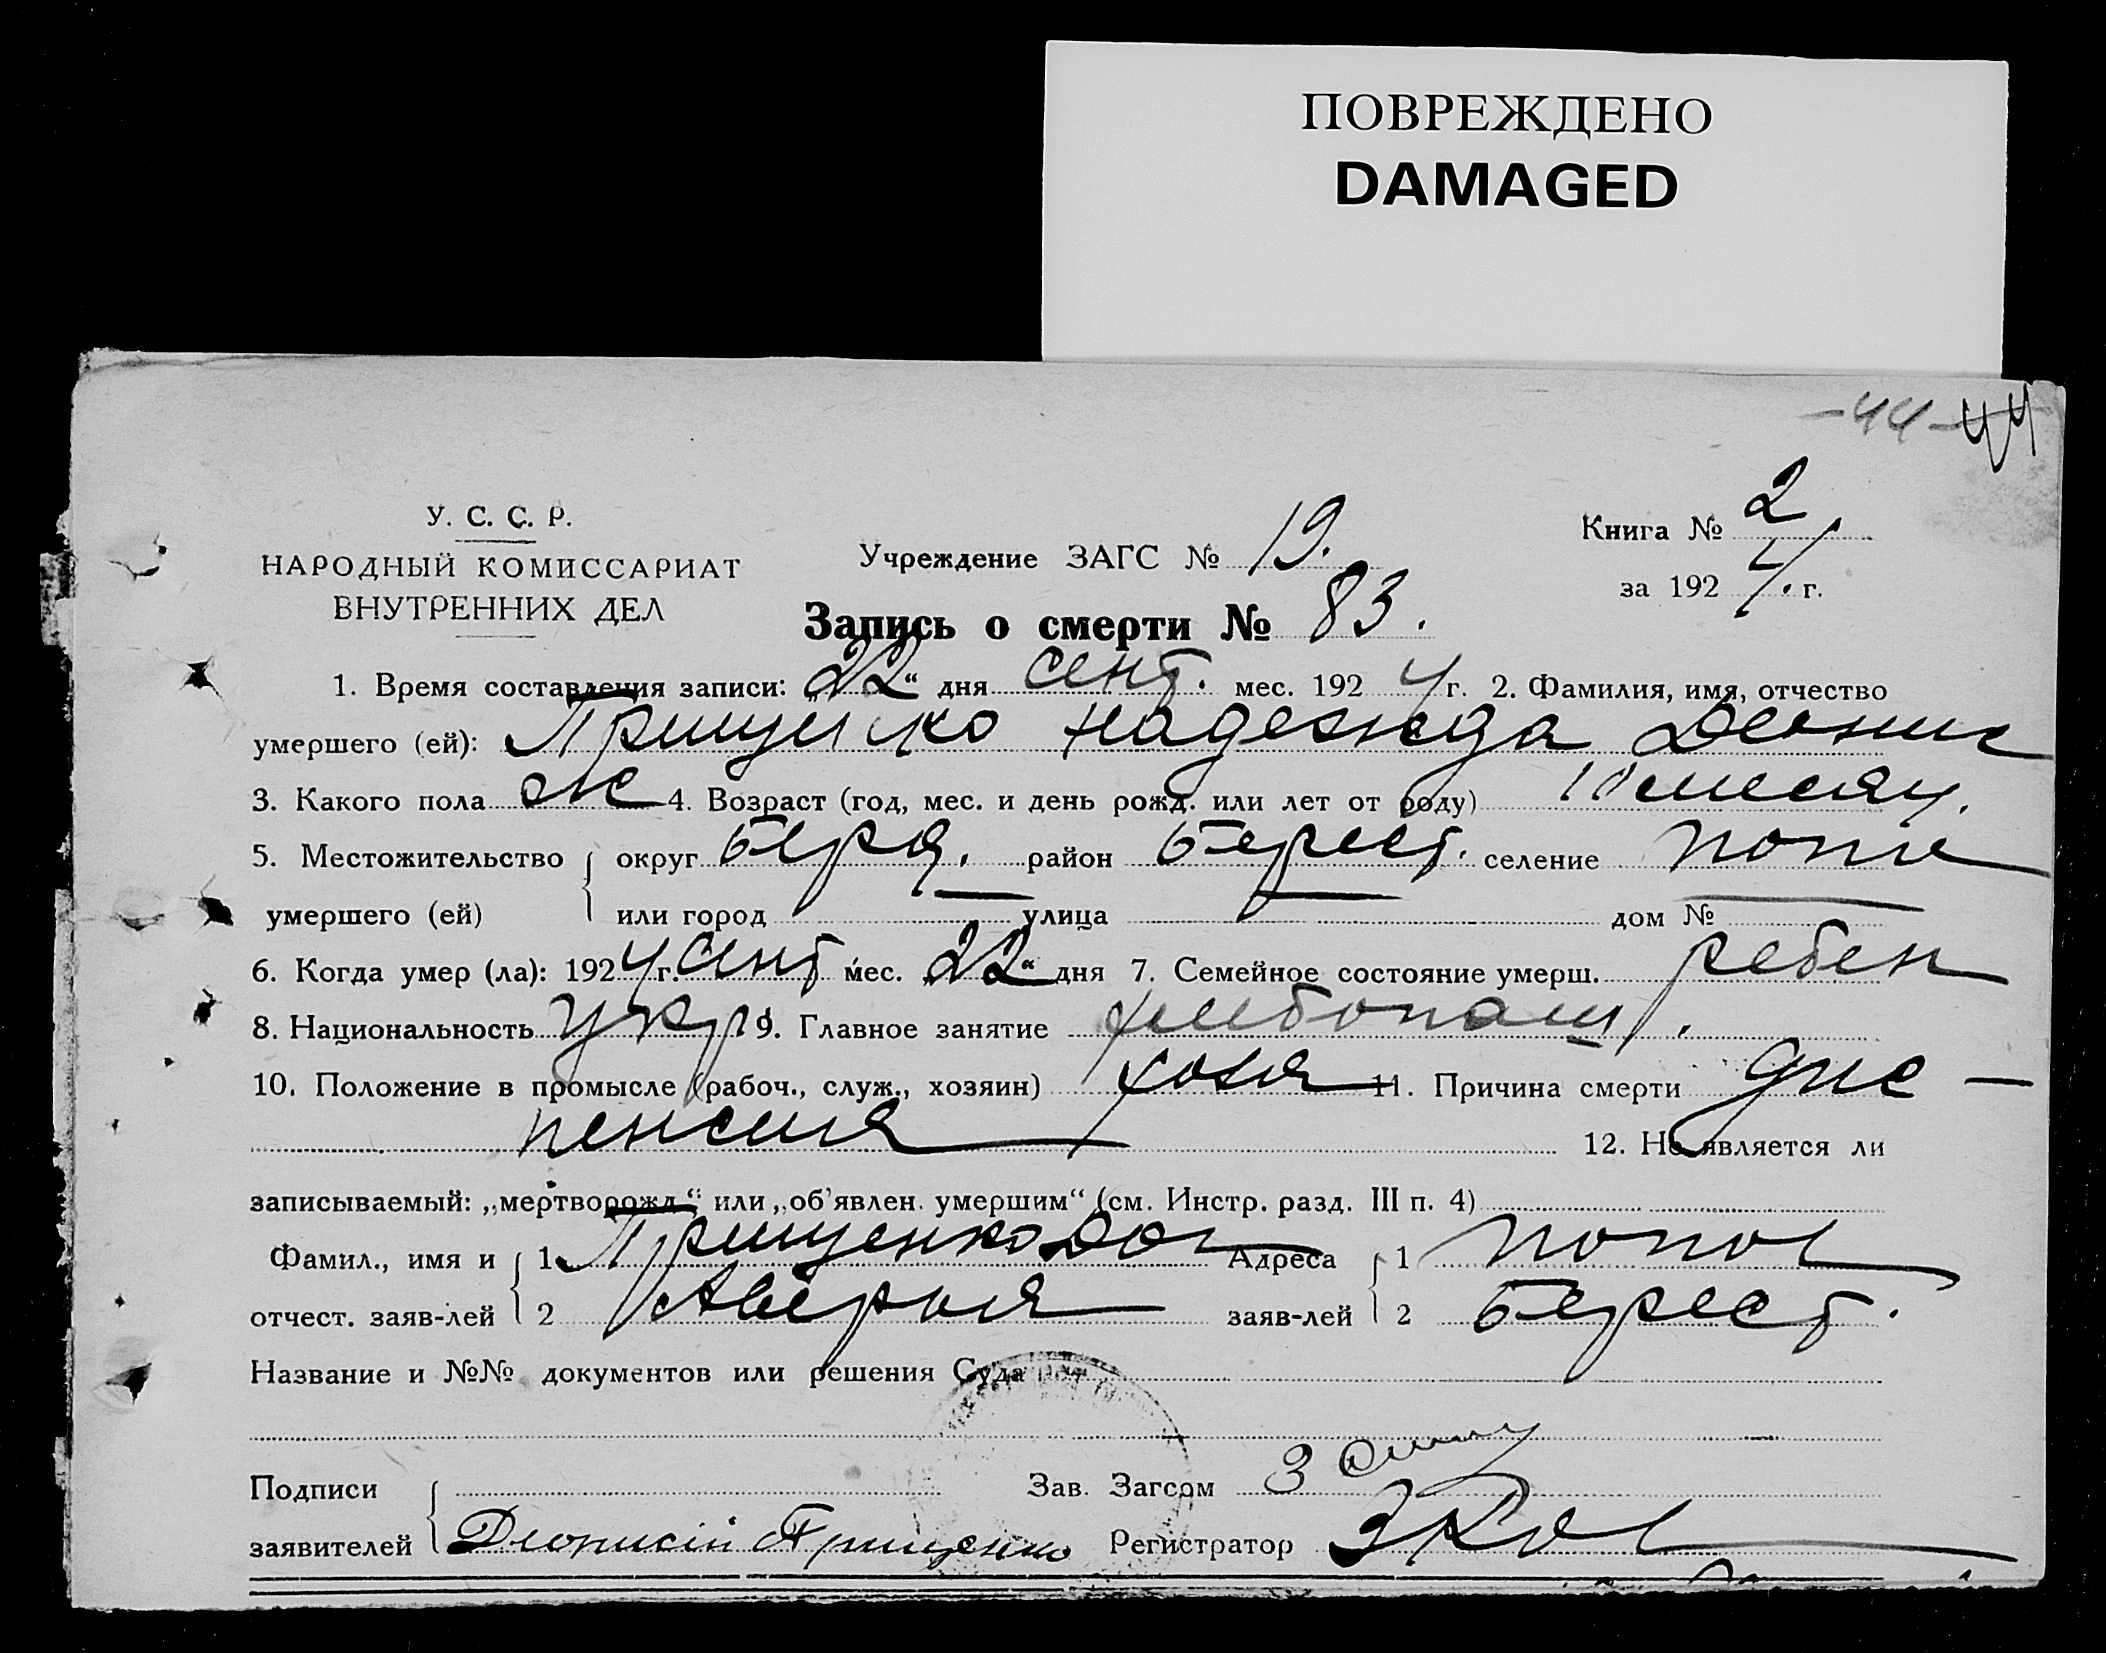 ПОВРЕЖДЕНО
DAMAGED
-44- 44
У. С. С. Р.
НАРОДНЫЙ КОМИССАРИАТ
ВНУТРЕННИХ ДЕЛ
Учреждение ЗАГС № 19.
Книга № 2
за 1924. г.
Запись о смерти № 83.
1. Время составления записи: „22“ дня сент. мес. 1924 г. 2. Фамилия, имя, отчество
умершего (ей): Прищенко Надежда Деонис
3. Какого пола ж 4. Возраст (год, мес. и день рожд. или лет от роду) 10 месяц.
5. Местожительство округ Берд. район Берест. селение Попов
умершего (ей) или город улица дом №
6. Когда умер (ла): 1924 г. сент мес. „22“ дня 7. Семейное состояние умерш. ребен
8. Национальность укр 9. Главное занятие хлебопаш.
10. Положение в промысле (рабоч., служ., хозяин) хозя 11. Причина смерти дис-
пепсия 12. Не является ли
записываемый: „мертворожд.“ или „об'явлен. умершим“ (см. Инстр. разд. III п. 4)
Фамил., имя и 1 Прищенко Адреса 1 Попов
отчест. заяв-лей 2 Аверья заяв-лей 2 Берест.
Название и №№ документов или решения Суда
Подписи Зав. Загсом
заявителей Дионисій Прищенко Регистратор